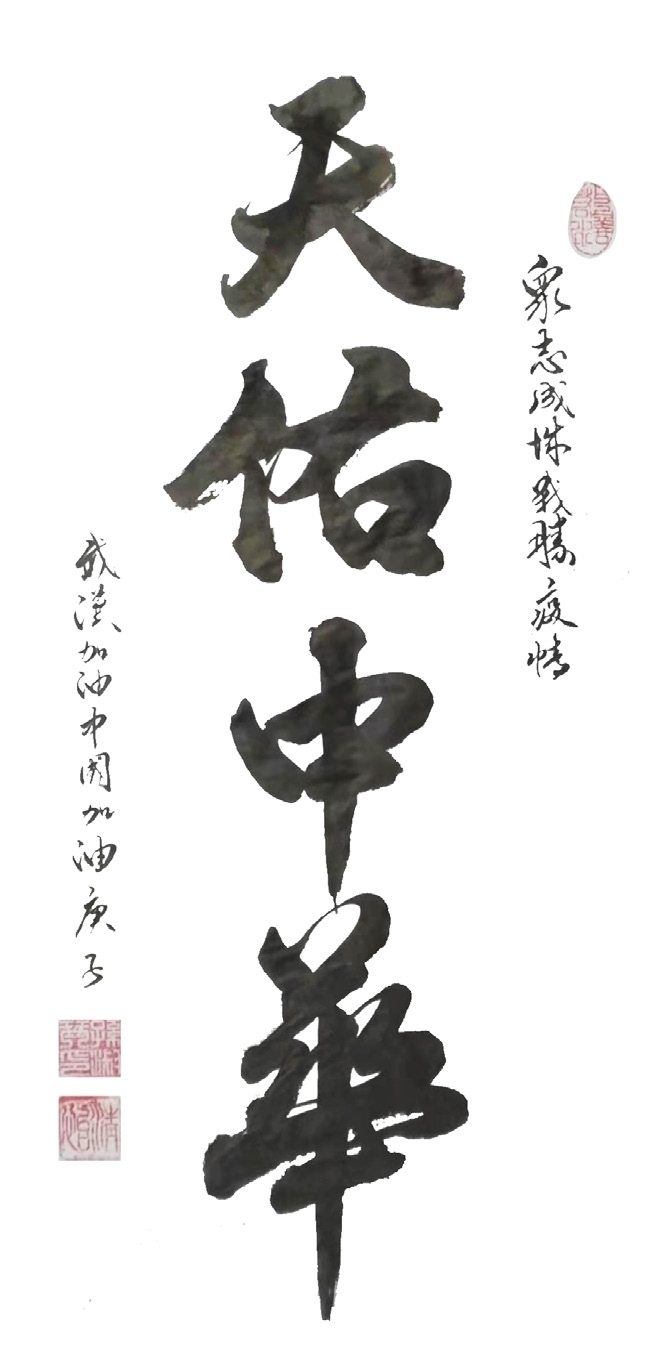 衆志成城戰勝疫情
天佑中華
武漢加油中國加油庚子